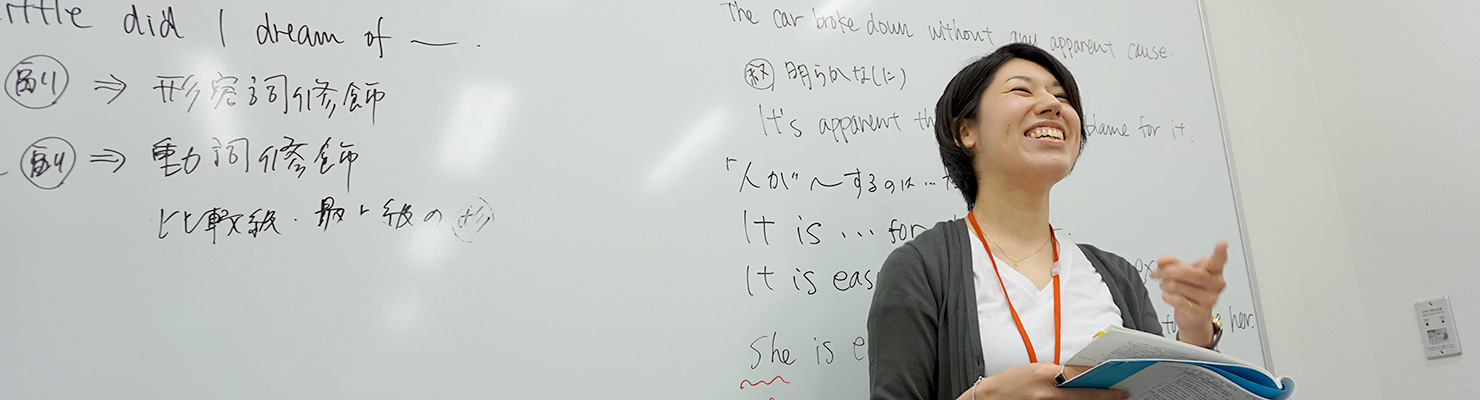 little did I dream of 〜.
副 ⇒ 形容詞修飾
副 ⇒ 動詞修飾
比較級・最上級の
The car broke down without any apparent cause.
明らかな(に)
It's apparent th blame for it.
「人が」〜するのは…
It is … for
It is eas
her.
She is e